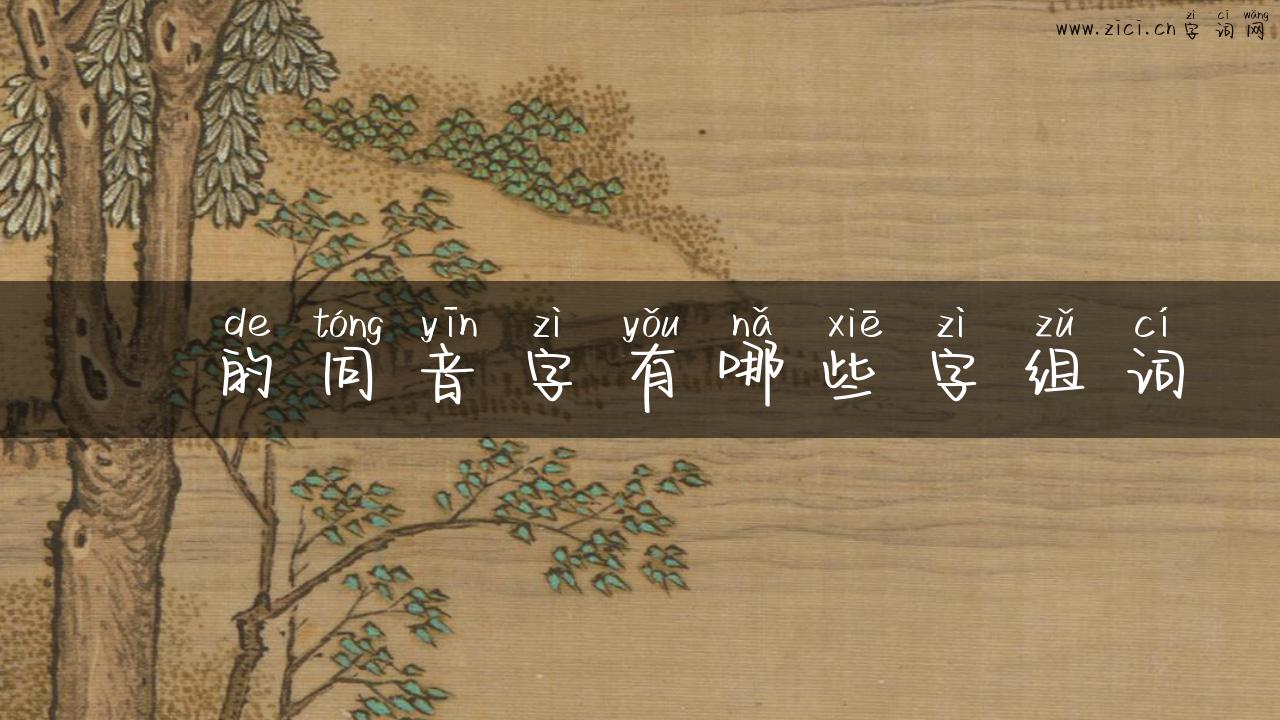 zì cí wǎng
www.zici.cn字词网
de tóng yīn zì yǒu nǎ xiē zì zǔ cí
的同音字有哪些字组词